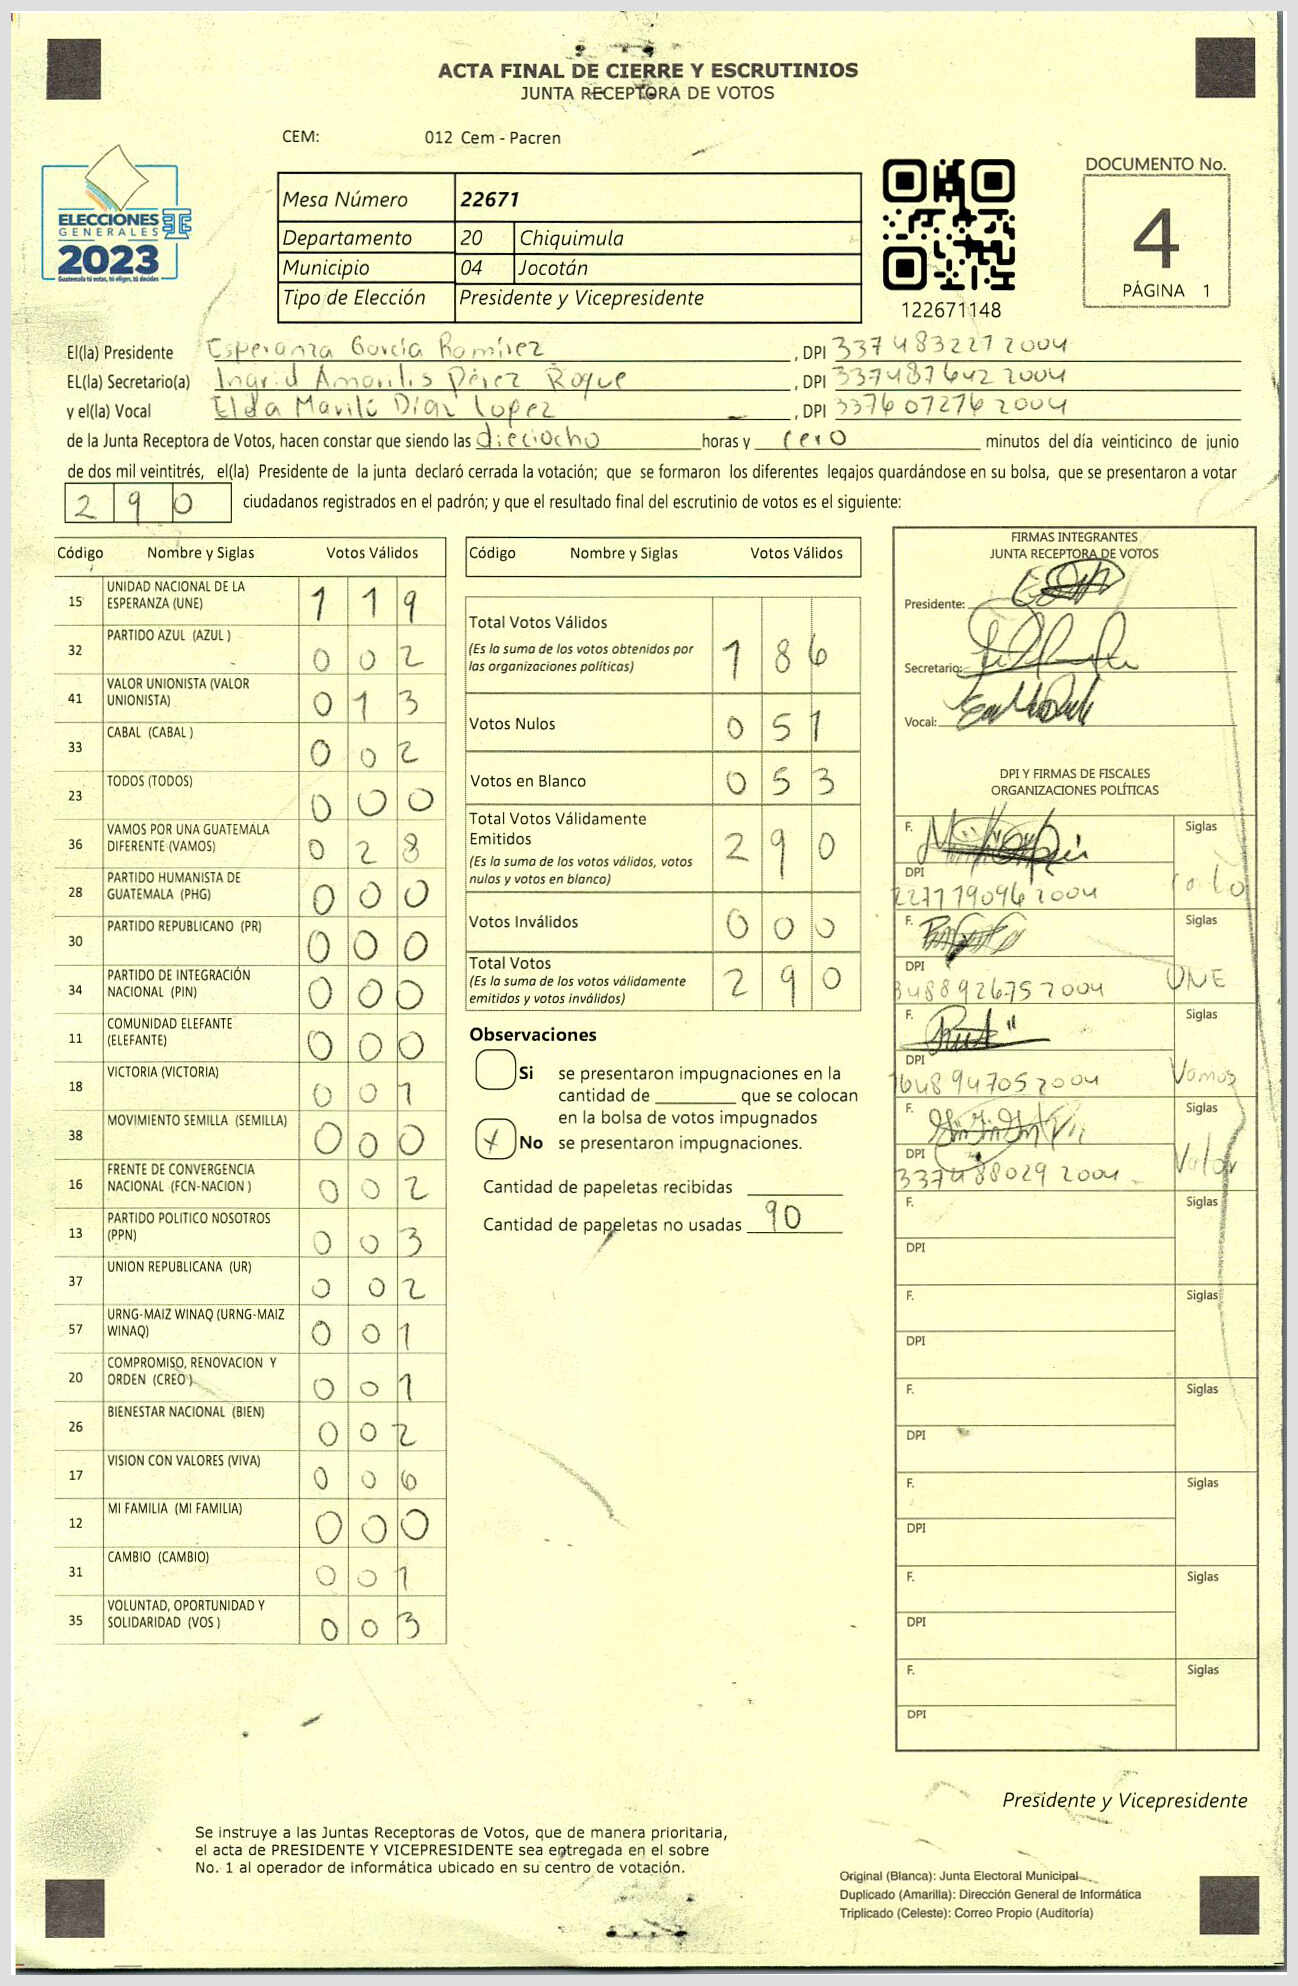 ACTA FINAL DE CIERRE Y ESCRUTINIOS
JUNTA RECEPTORA DE VOTOS
CEM: 012 Cem - Pacren
ELECCIONES
GENERALES
2023
Guatemala tú votas, tú eliges, tú decides
Mesa Número 22671
Departamento 20 Chiquimula
Municipio 04 Jocotán
Tipo de Elección Presidente y Vicepresidente
122671148
DOCUMENTO No.
4
PÁGINA 1
El(la) Presidente Esperanza García Ramírez, DPI 337483227 2004
EL(la) Secretario(a) Ingrid Amarilis Pérez Roque, DPI 337487642 2004
y el(la) Vocal Elda Marilú Díaz Lopez, DPI 337607276 2004
de la Junta Receptora de Votos, hacen constar que siendo las dieciocho horas y cero minutos del día veinticinco de junio
de dos mil veintitrés, el(la) Presidente de la junta declaró cerrada la votación; que se formaron los diferentes legajos guardándose en su bolsa, que se presentaron a votar
290 ciudadanos registrados en el padrón; y que el resultado final del escrutinio de votos es el siguiente:
Código Nombre y Siglas Votos Válidos
15 UNIDAD NACIONAL DE LA ESPERANZA (UNE) 119
32 PARTIDO AZUL (AZUL ) 002
41 VALOR UNIONISTA (VALOR UNIONISTA) 013
33 CABAL (CABAL ) 002
23 TODOS (TODOS) 000
36 VAMOS POR UNA GUATEMALA DIFERENTE (VAMOS) 028
28 PARTIDO HUMANISTA DE GUATEMALA (PHG) 000
30 PARTIDO REPUBLICANO (PR) 000
34 PARTIDO DE INTEGRACIÓN NACIONAL (PIN) 000
11 COMUNIDAD ELEFANTE (ELEFANTE) 000
18 VICTORIA (VICTORIA) 001
38 MOVIMIENTO SEMILLA (SEMILLA) 000
16 FRENTE DE CONVERGENCIA NACIONAL (FCN-NACION ) 002
13 PARTIDO POLITICO NOSOTROS (PPN) 003
37 UNION REPUBLICANA (UR) 002
57 URNG-MAIZ WINAQ (URNG-MAIZ WINAQ) 001
20 COMPROMISO, RENOVACION Y ORDEN (CREO ) 001
26 BIENESTAR NACIONAL (BIEN) 002
17 VISION CON VALORES (VIVA) 006
12 MI FAMILIA (MI FAMILIA) 000
31 CAMBIO (CAMBIO) 001
35 VOLUNTAD, OPORTUNIDAD Y SOLIDARIDAD (VOS ) 003
Código Nombre y Siglas Votos Válidos
Total Votos Válidos 186
(Es la suma de los votos obtenidos por
las organizaciones políticas)
Votos Nulos 051
Votos en Blanco 053
Total Votos Válidamente
Emitidos 290
(Es la suma de los votos válidos, votos
nulos y votos en blanco)
Votos Inválidos 000
Total Votos 290
(Es la suma de los votos válidamente
emitidos y votos inválidos)
Observaciones
Si se presentaron impugnaciones en la
cantidad de ________ que se colocan
en la bolsa de votos impugnados
X No se presentaron impugnaciones.
Cantidad de papeletas recibidas
Cantidad de papeletas no usadas 90
FIRMAS INTEGRANTES
JUNTA RECEPTORA DE VOTOS
Presidente:
Secretario:
Vocal:
DPI Y FIRMAS DE FISCALES
ORGANIZACIONES POLÍTICAS
F. Siglas
DPI
227779096 2004
F. Siglas
DPI UNE
348892675 2004
F. Siglas
DPI Vamos
164894705 2004
F. Siglas
DPI Valor
337488029 2004
F. Siglas
DPI
F. Siglas
DPI
F. Siglas
DPI
F. Siglas
DPI
F. Siglas
DPI
F. Siglas
DPI
Presidente y Vicepresidente
Se instruye a las Juntas Receptoras de Votos, que de manera prioritaria,
el acta de PRESIDENTE Y VICEPRESIDENTE sea entregada en el sobre
No. 1 al operador de informática ubicado en su centro de votación.
Original (Blanca): Junta Electoral Municipal
Duplicado (Amarilla): Dirección General de Informática
Triplicado (Celeste): Correo Propio (Auditoría)